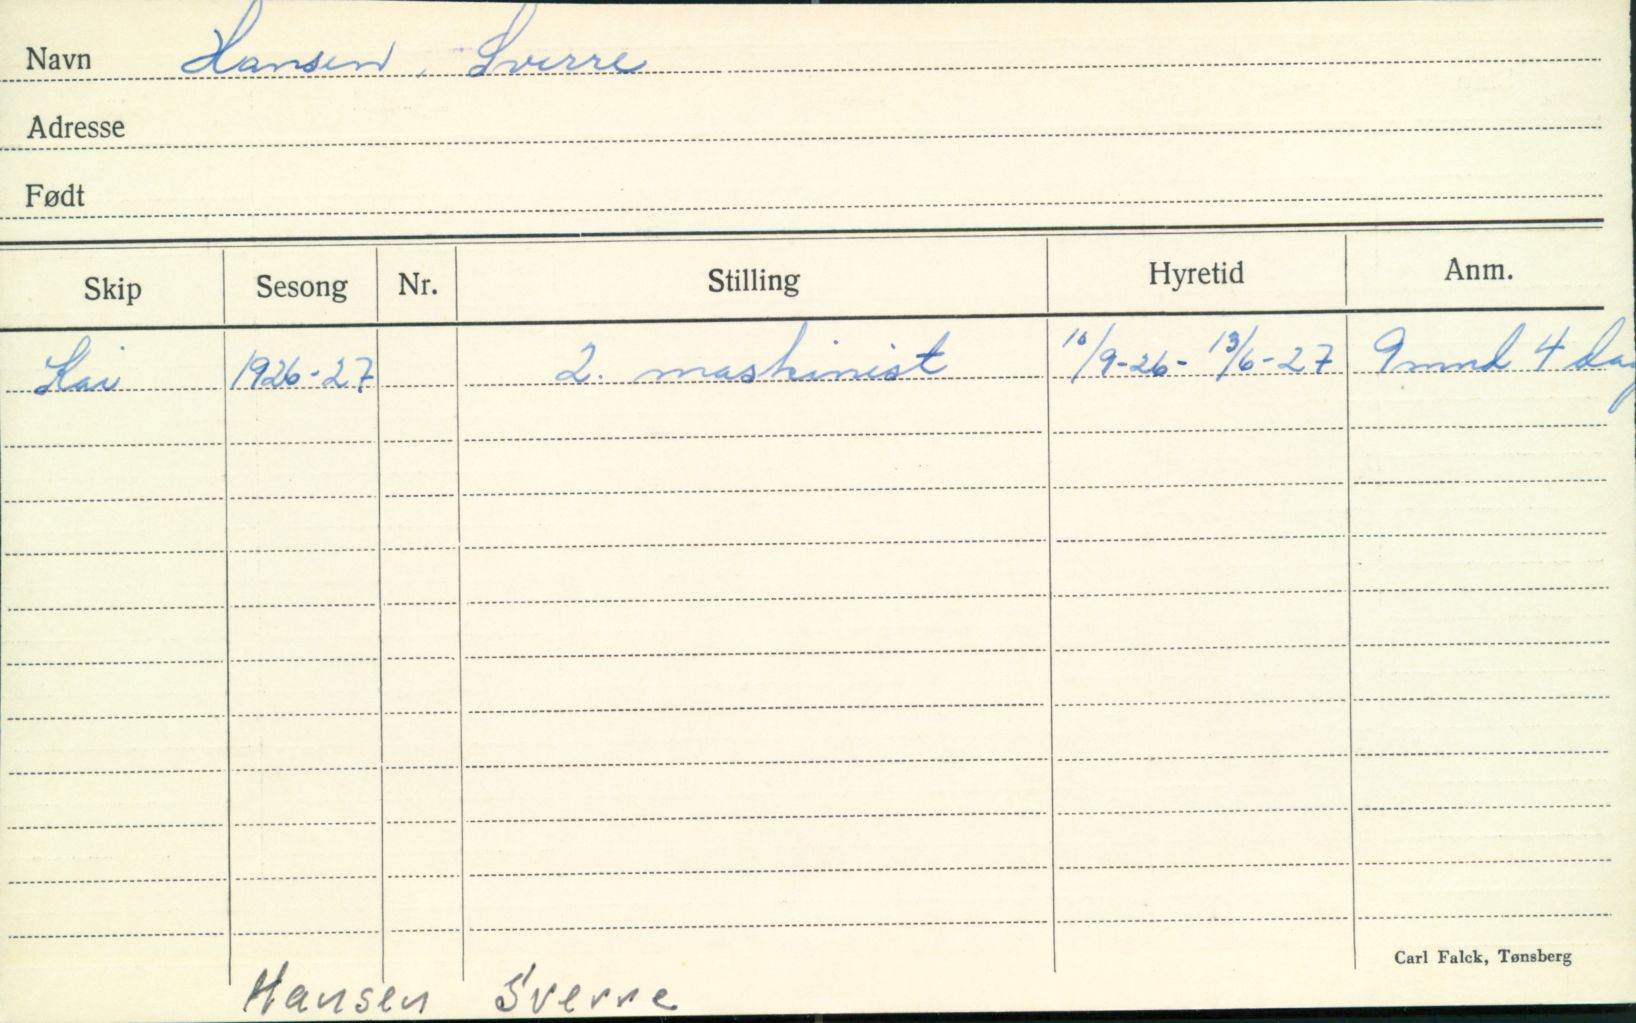 Navn Hansen, Sverre
Adresse
Født
Skip Sesong Nr. Stilling Hyretid Anm.
Kai 1926-27 2. maskinist 10/9-26 - 13/6-27 9 mnd 4 dag
Carl Falck, Tønsberg
Hansen Sverre